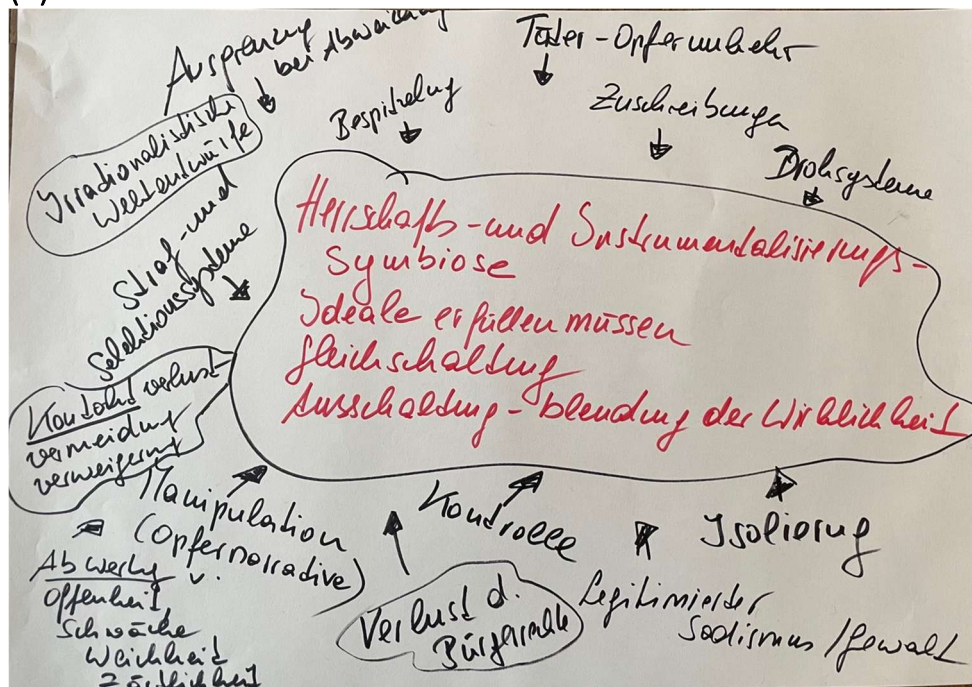 Ausgrenzung
bei Abweichung
Täter-Opferumkehr
Bespitzelung
Zuschreibungen
Drohsysteme
Irrationalistische
Weltentwürfe
Straf- und
Selektionssysteme
Herrschafts- und Instrumentalisierungs-
Symbiose
Ideale erfüllen müssen
Gleichschaltung
Ausschaltung - blendung der Wirklichkeit
Kontaktverlust
vermeidung
verweigerung
Manipulation
(Opfernarrative)
Kontrolle
Isolierung
Abwertg v.
Offenheit
Schwäche
Weichheit
Zärtlichkeit
Verlust d.
Bürgerrechte
Legitimierter
Sadismus / Gewalt